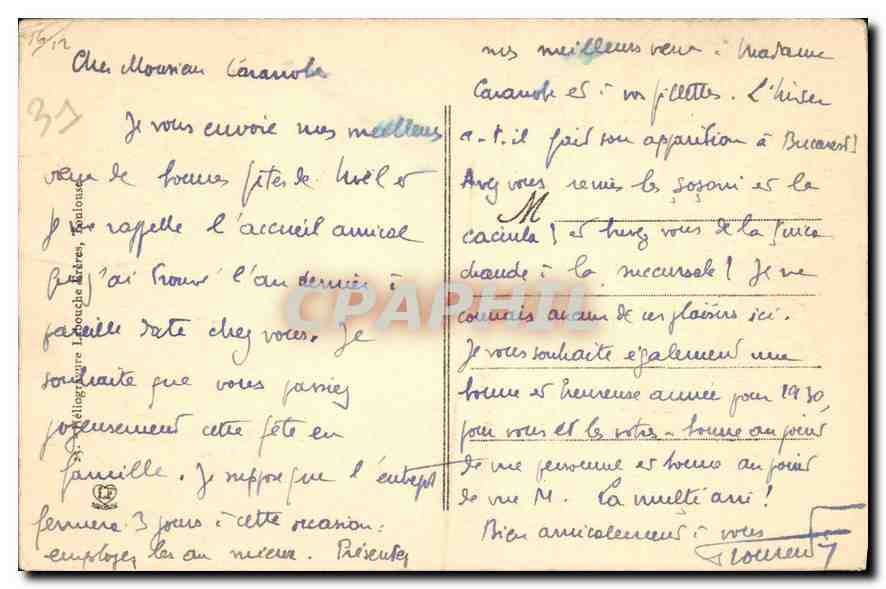 Cher Monsieur
31
Je vous envoie mes meilleurs
vœux de bonnes fêtes de Noël et
je me rappelle l'accueil amical
que j'ai trouvé l'an dernier à
pareille date chez vous. Je
souhaite que vous passiez
joyeusement cette fête en
famille. Je suppose que l'entrepôt
fermera 3 jours à cette occasion :
employez les au mieux. Présentez
mes meilleurs vœux à Madame
et à vos fillettes. L'hiver
a-t-il fait son apparition à Bucarest !
Avez vous remis les șoșoni et la
caciula ! et buvez vous de la țuica
chaude à la succursale ! Je ne
connais aucun de ces plaisirs ici.
Je vous souhaite également une
bonne et heureuse année pour 1930,
pour vous et les vôtres - bonne au point
de vue personnel et bonne au point
de vue M. La multi ani !
Bien amicalement à vous
Labouche Frères, Toulouse
LF
CPAPHIL